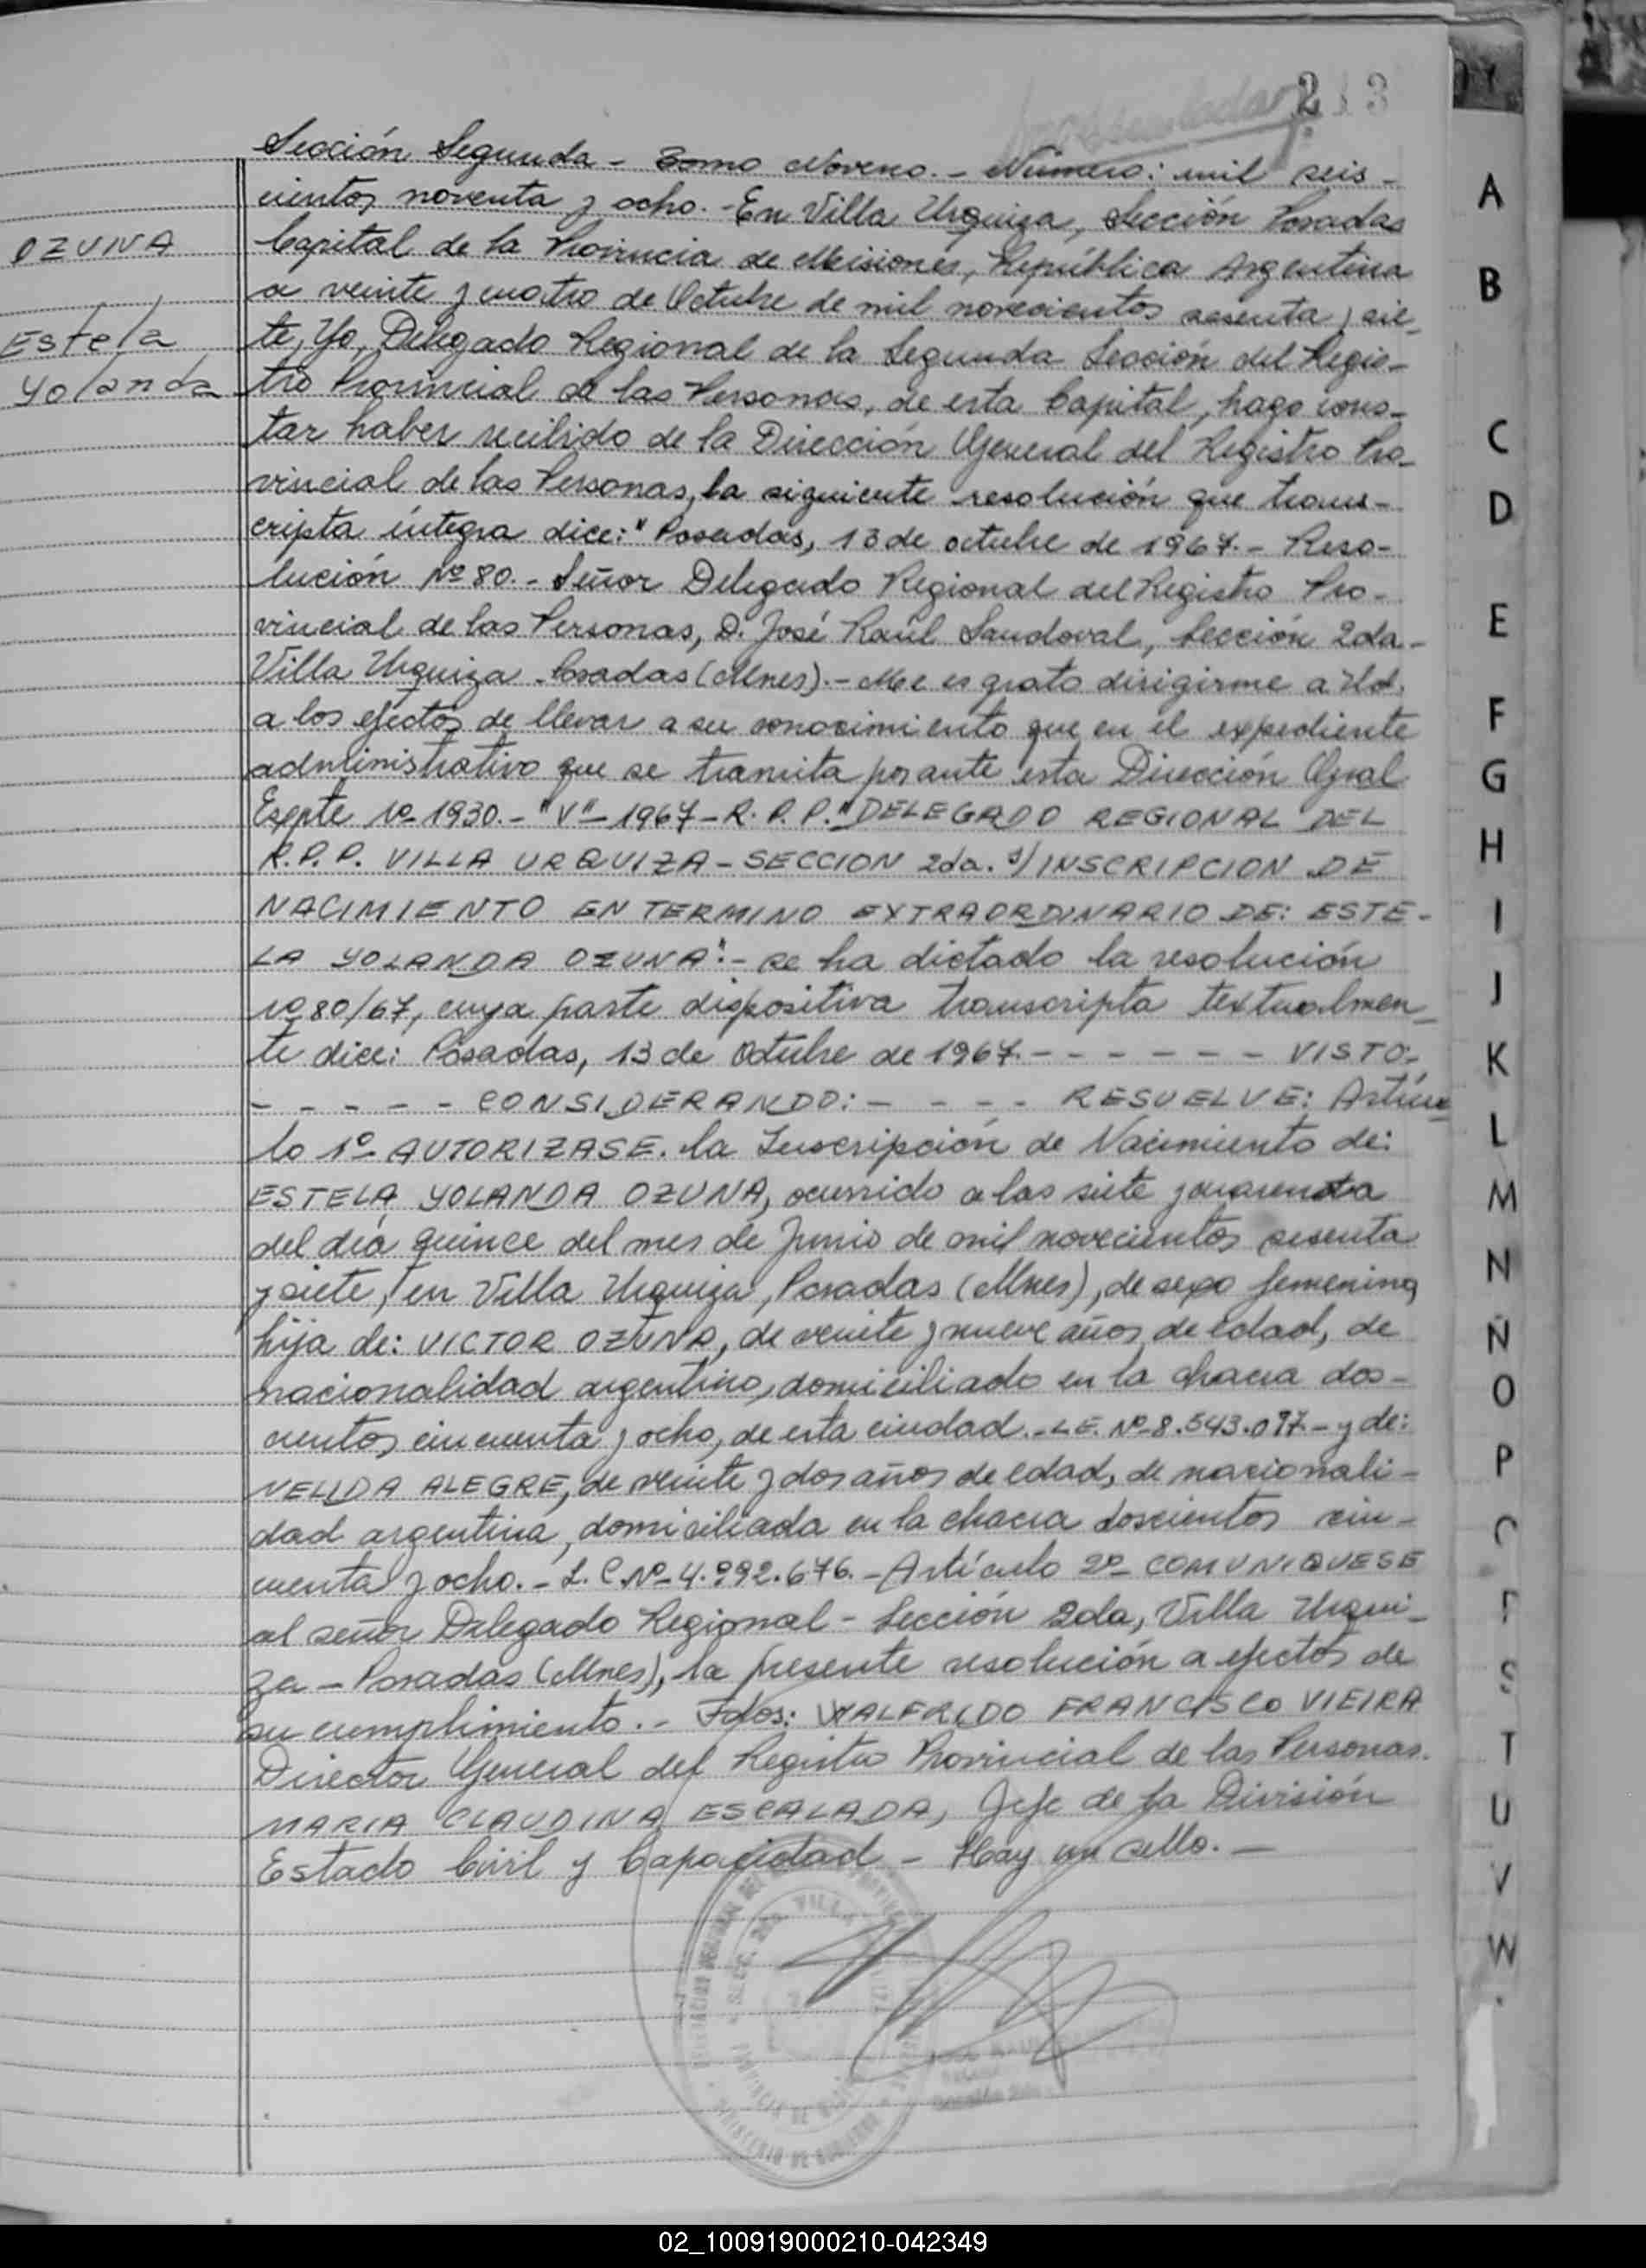 2 3
Sección Segunda - Tomo Noveno. - Número: mil seis -
cientos noventa y ocho. - En Villa Urquiza, Sección Posadas
OZUNA
Capital de la Provincia de Misiones, República Argentina
a veinte y cuatro de Octubre de mil novecientos sesenta y sie-
Estela
te, Yo, Delegado Regional de la Segunda Sección del Regis-
Yolanda
tro Provincial de las Personas, de esta Capital, hago cons-
tar haber recibido de la Dirección General del Registro Pro-
vincial de las Personas, la siguiente resolución que trans-
cripta íntegra dice: " Posadas, 13 de octubre de 1967. - Reso-
lución Nº 80. - Señor Delegado Regional del Registro Pro-
vincial de las Personas, D. José Raúl Sandoval, Sección 2da -
Villa Urquiza - Posadas (Mnes). - Me es grato dirigirme a Ud.
a los efectos de llevar a su conocimiento que en el expediente
administrativo que se tramita por ante esta Dirección Gral
Expte Nº 1930. - "V" - 1967 - R. P. P. " DELEGADO REGIONAL DEL
R.P.P. VILLA URQUIZA - SECCION 2da. s/ INSCRIPCION DE
NACIMIENTO EN TERMINO EXTRAORDINARIO DE: ESTE-
LA YOLANDA OZUNA": - se ha dictado la resolución
Nº 80/67, cuya parte dispositiva transcripta textualmen-
te dice: Posadas, 13 de Octubre de 1967. - - - - - - - VISTO: -
- - - - - CONSIDERANDO: - - - - RESUELVE: Artícu-
lo 1º AUTORIZASE. la Inscripción de Nacimiento de:
ESTELA YOLANDA OZUNA, ocurrido a las siete y cuarenta
del día quince del mes de Junio de mil novecientos sesenta
y siete, en Villa Urquiza, Posadas (Mnes), de sexo femenino,
hija de: VICTOR OZUNA, de veinte y nueve años de edad, de
nacionalidad argentino, domiciliado en la chacra dos-
cientos cincuenta y ocho, de esta ciudad. - L.E. Nº 8.543.097. - y de:
NELIDA ALEGRE, de veinte y dos años de edad, de nacionali-
dad argentina, domiciliada en la chacra doscientos cin-
cuenta y ocho. - L. C. Nº 4.992.676. - Artículo 2º COMUNIQUESE
al señor Delegado Regional - Sección 2da, Villa Urqui-
za - Posadas (Mnes), la presente resolución a efectos de
su cumplimiento. - Fdos: WALFRIDO FRANCISCO VIEIRA
Director General del Registro Provincial de las Personas.
MARIA CLAUDINA ESCALADA, Jefe de la División
Estado Civil y Capacidad - Hay un sello. -
VILLA
PROVINCIA DE
MINISTERIO DE GOBIERNO
A
B
C
D
E
F
G
H
I
J
K
L
M
N
Ñ
O
P
S
T
U
V
W
02_100919000210-042349